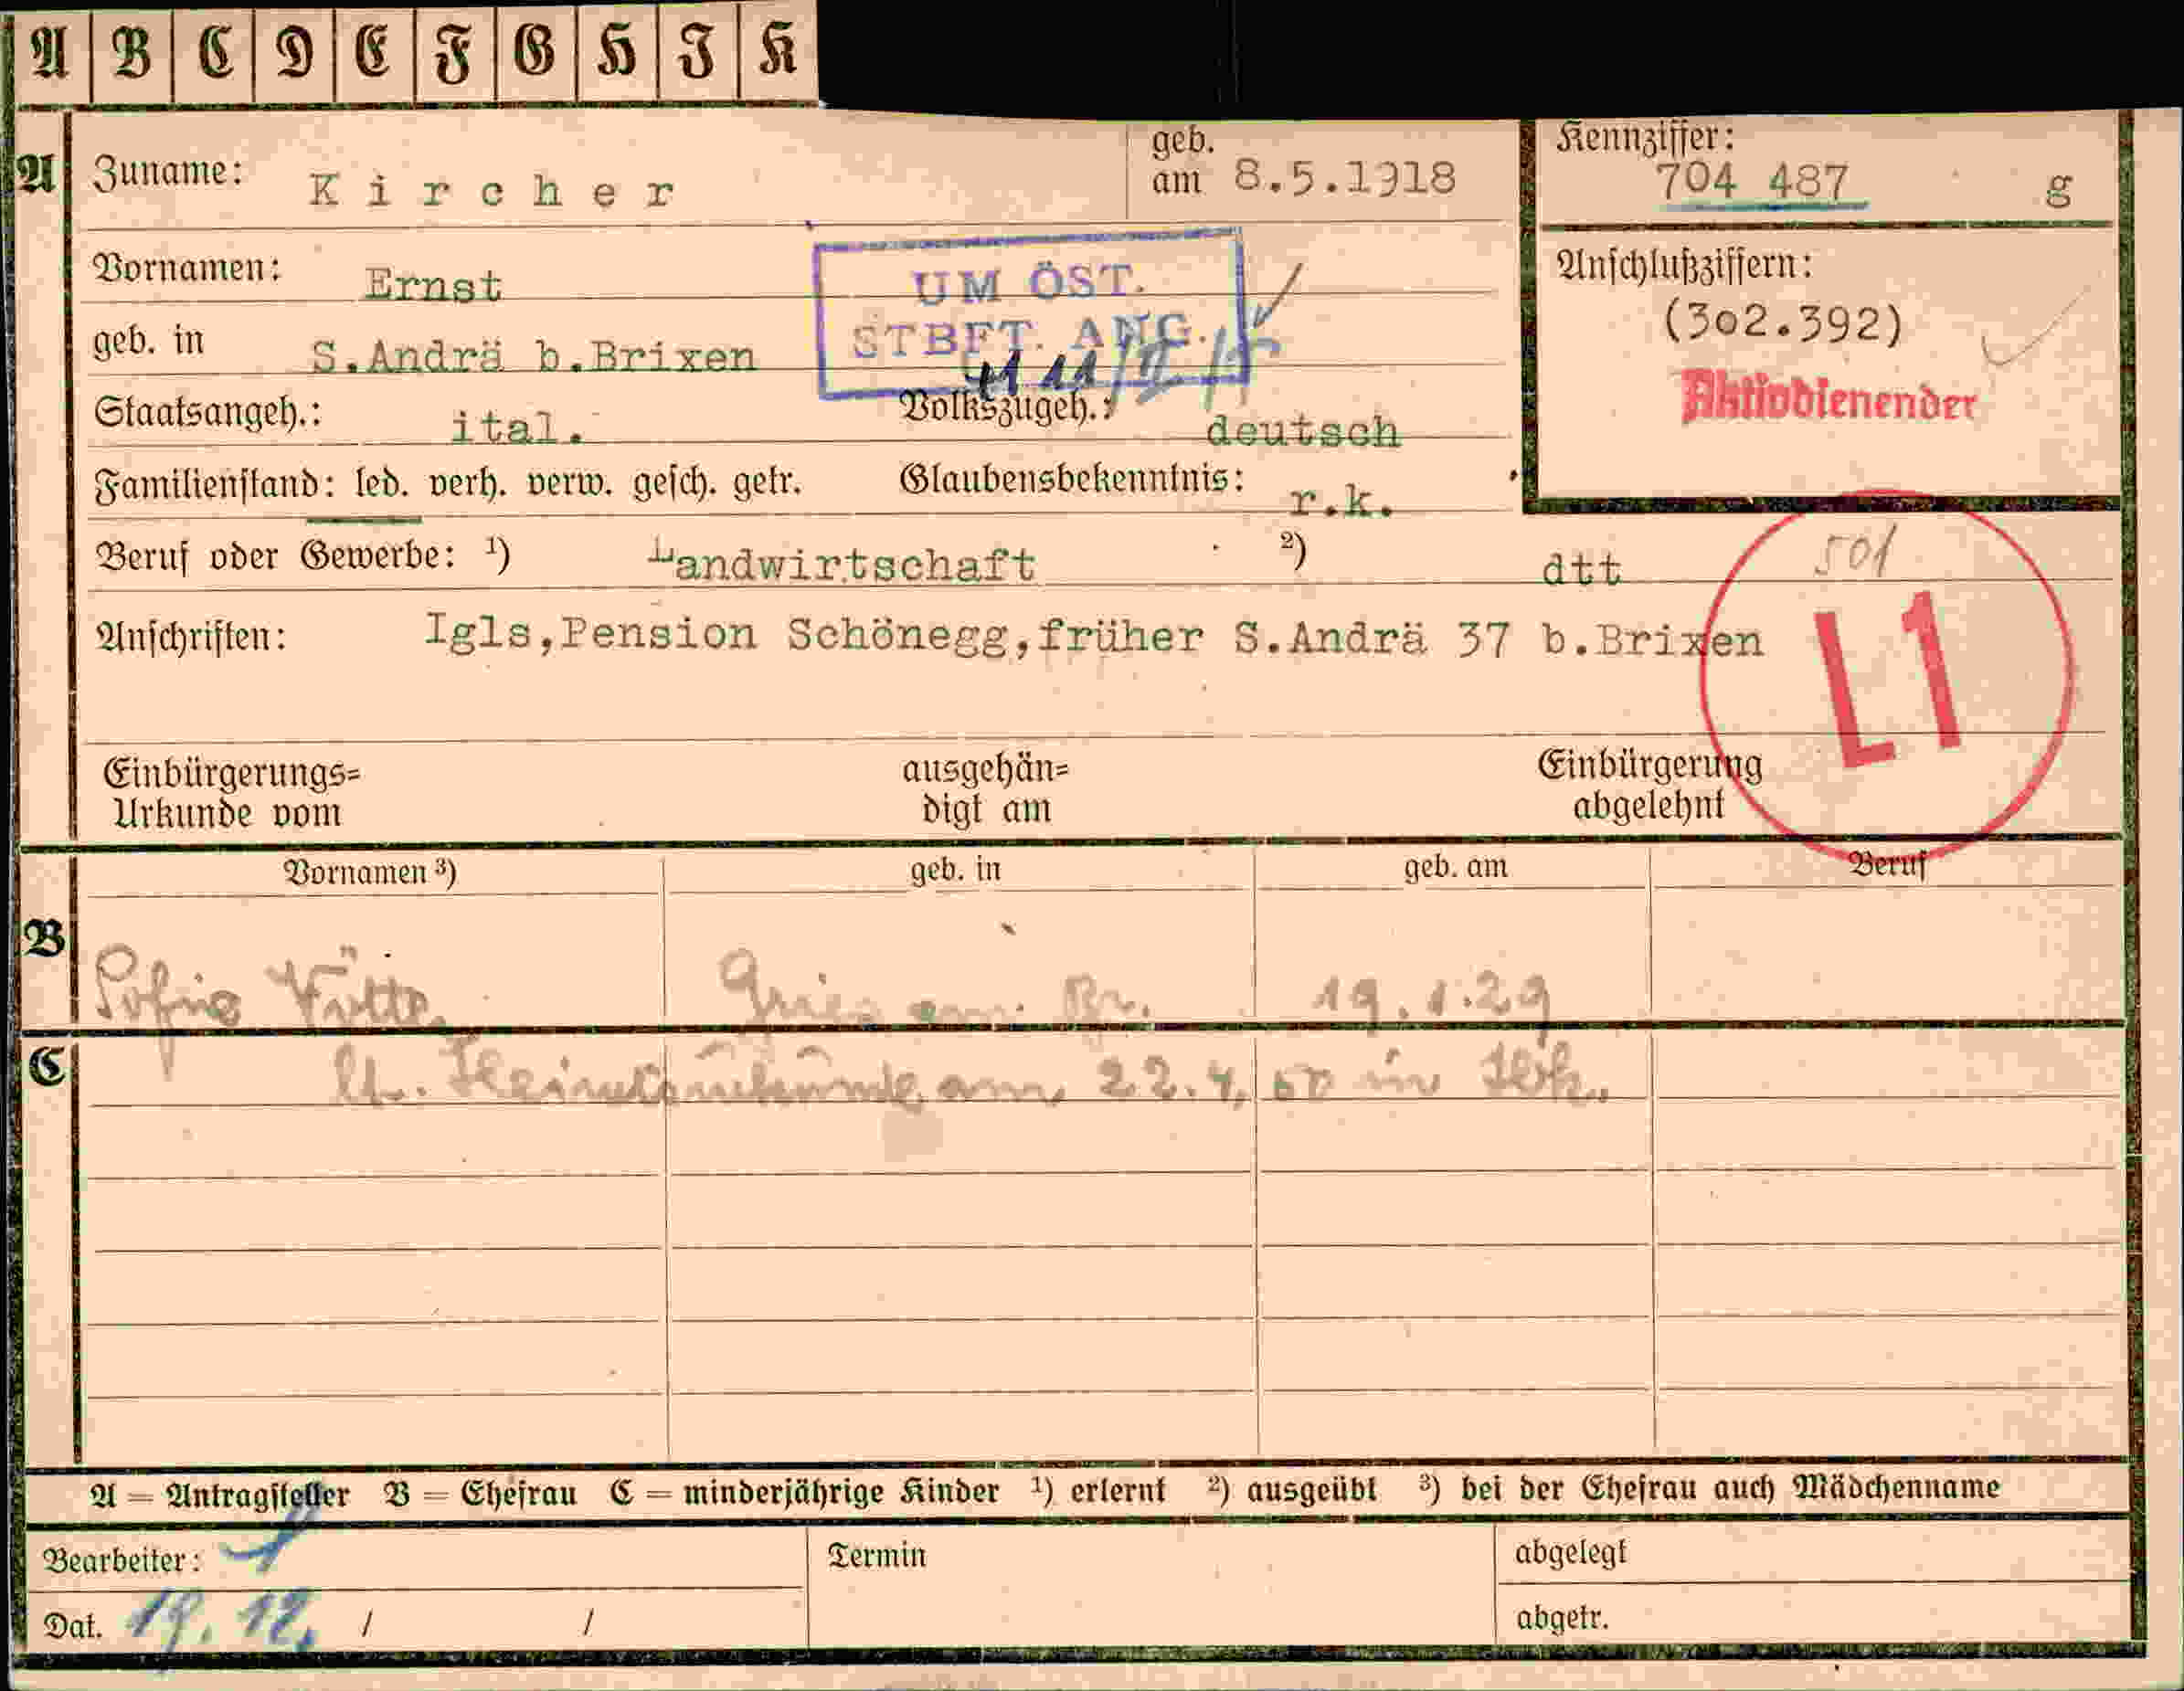 A B C D E F G H I K
A Zuname: Kircher geb. am 8.5.1918
Kennziffer: 704 487 g
Vornamen: Ernst
UM ÖST.
STBFT. ANG.
geb. in S.Andrä b.Brixen
Anschlußziffern:
(302.392)
Aktivdienender
Staatsangeh.: ital. Volkszugeh.: deutsch
Familienstand: led. verh. verw. gesch. getr. Glaubensbekenntnis: r.k.
Beruf oder Gewerbe: ¹) Landwirtschaft ²) dtt 501
Anschriften: Igls,Pension Schönegg,früher S.Andrä 37 b.Brixen
L1
Einbürgerungs= Urkunde vom ausgehän= digt am Einbürgerung abgelehnt
Vornamen ³) geb. in geb. am Beruf
B Gries am Br. 19.1.29
C am 22.4.50 in
A = Antragsteller B = Ehefrau C = minderjährige Kinder ¹) erlernt ²) ausgeübt ³) bei der Ehefrau auch Mädchenname
Bearbeiter: Termin abgelegt
Dat. 19. 12. / / abgetr.